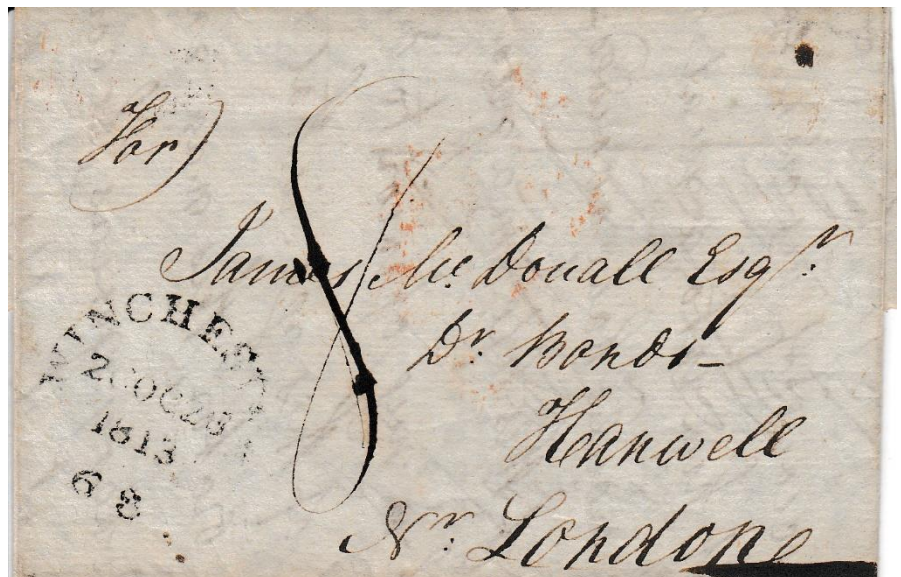 For
8
James Mc Douall Esqr.
Dr. Bonds
Hanwell
Nr. London
WINCHESTER
OC28
1813
68